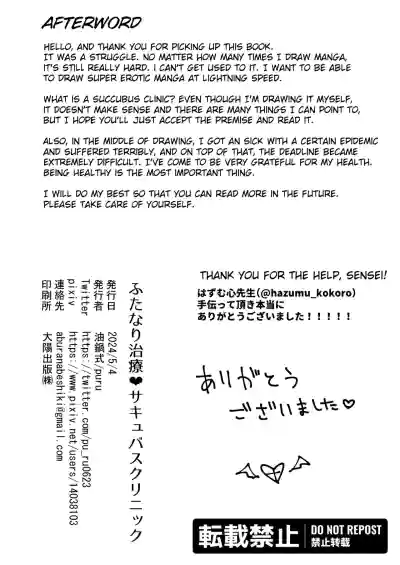 AFTERWORD
HELLO, AND THANK YOU FOR PICKING UP THIS BOOK.
IT WAS A STRUGGLE. NO MATTER HOW MANY TIMES I DRAW MANGA,
IT'S STILL REALLY HARD. I CAN'T GET USED TO IT. I WANT TO BE ABLE
TO DRAW SUPER EROTIC MANGA AT LIGHTNING SPEED.
WHAT IS A SUCCUBUS CLINIC? EVEN THOUGH I'M DRAWING IT MYSELF,
IT DOESN'T MAKE SENSE AND THERE ARE MANY THINGS I CAN POINT TO,
BUT I HOPE YOU'LL JUST ACCEPT THE PREMISE AND READ IT.
ALSO, IN THE MIDDLE OF DRAWING, I GOT AN SICK WITH A CERTAIN EPIDEMIC
AND SUFFERED TERRIBLY, AND ON TOP OF THAT, THE DEADLINE BECAME
EXTREMELY DIFFICULT. I'VE COME TO BE VERY GRATEFUL FOR MY HEALTH.
BEING HEALTHY IS THE MOST IMPORTANT THING.
I WILL DO MY BEST SO THAT YOU CAN READ MORE IN THE FUTURE.
PLEASE TAKE CARE OF YOURSELF.
THANK YOU FOR THE HELP, SENSEI!
はずむ心先生(@hazumu_kokoro)
手伝って頂き本当に
ありがとうございました！！！！！
ありがとう
ございました♡
ふたなり治療♥サキュバスクリニック
発行日 2024/5/4
発行者 油鍋式/puru
Twitter https://twitter.com/pu_ru0623
pixiv https://www.pixiv.net/users/14038103
連絡先 aburanabeshiki@gmail.com
印刷所 大陽出版㈱
転載禁止
DO NOT REPOST
禁止转载